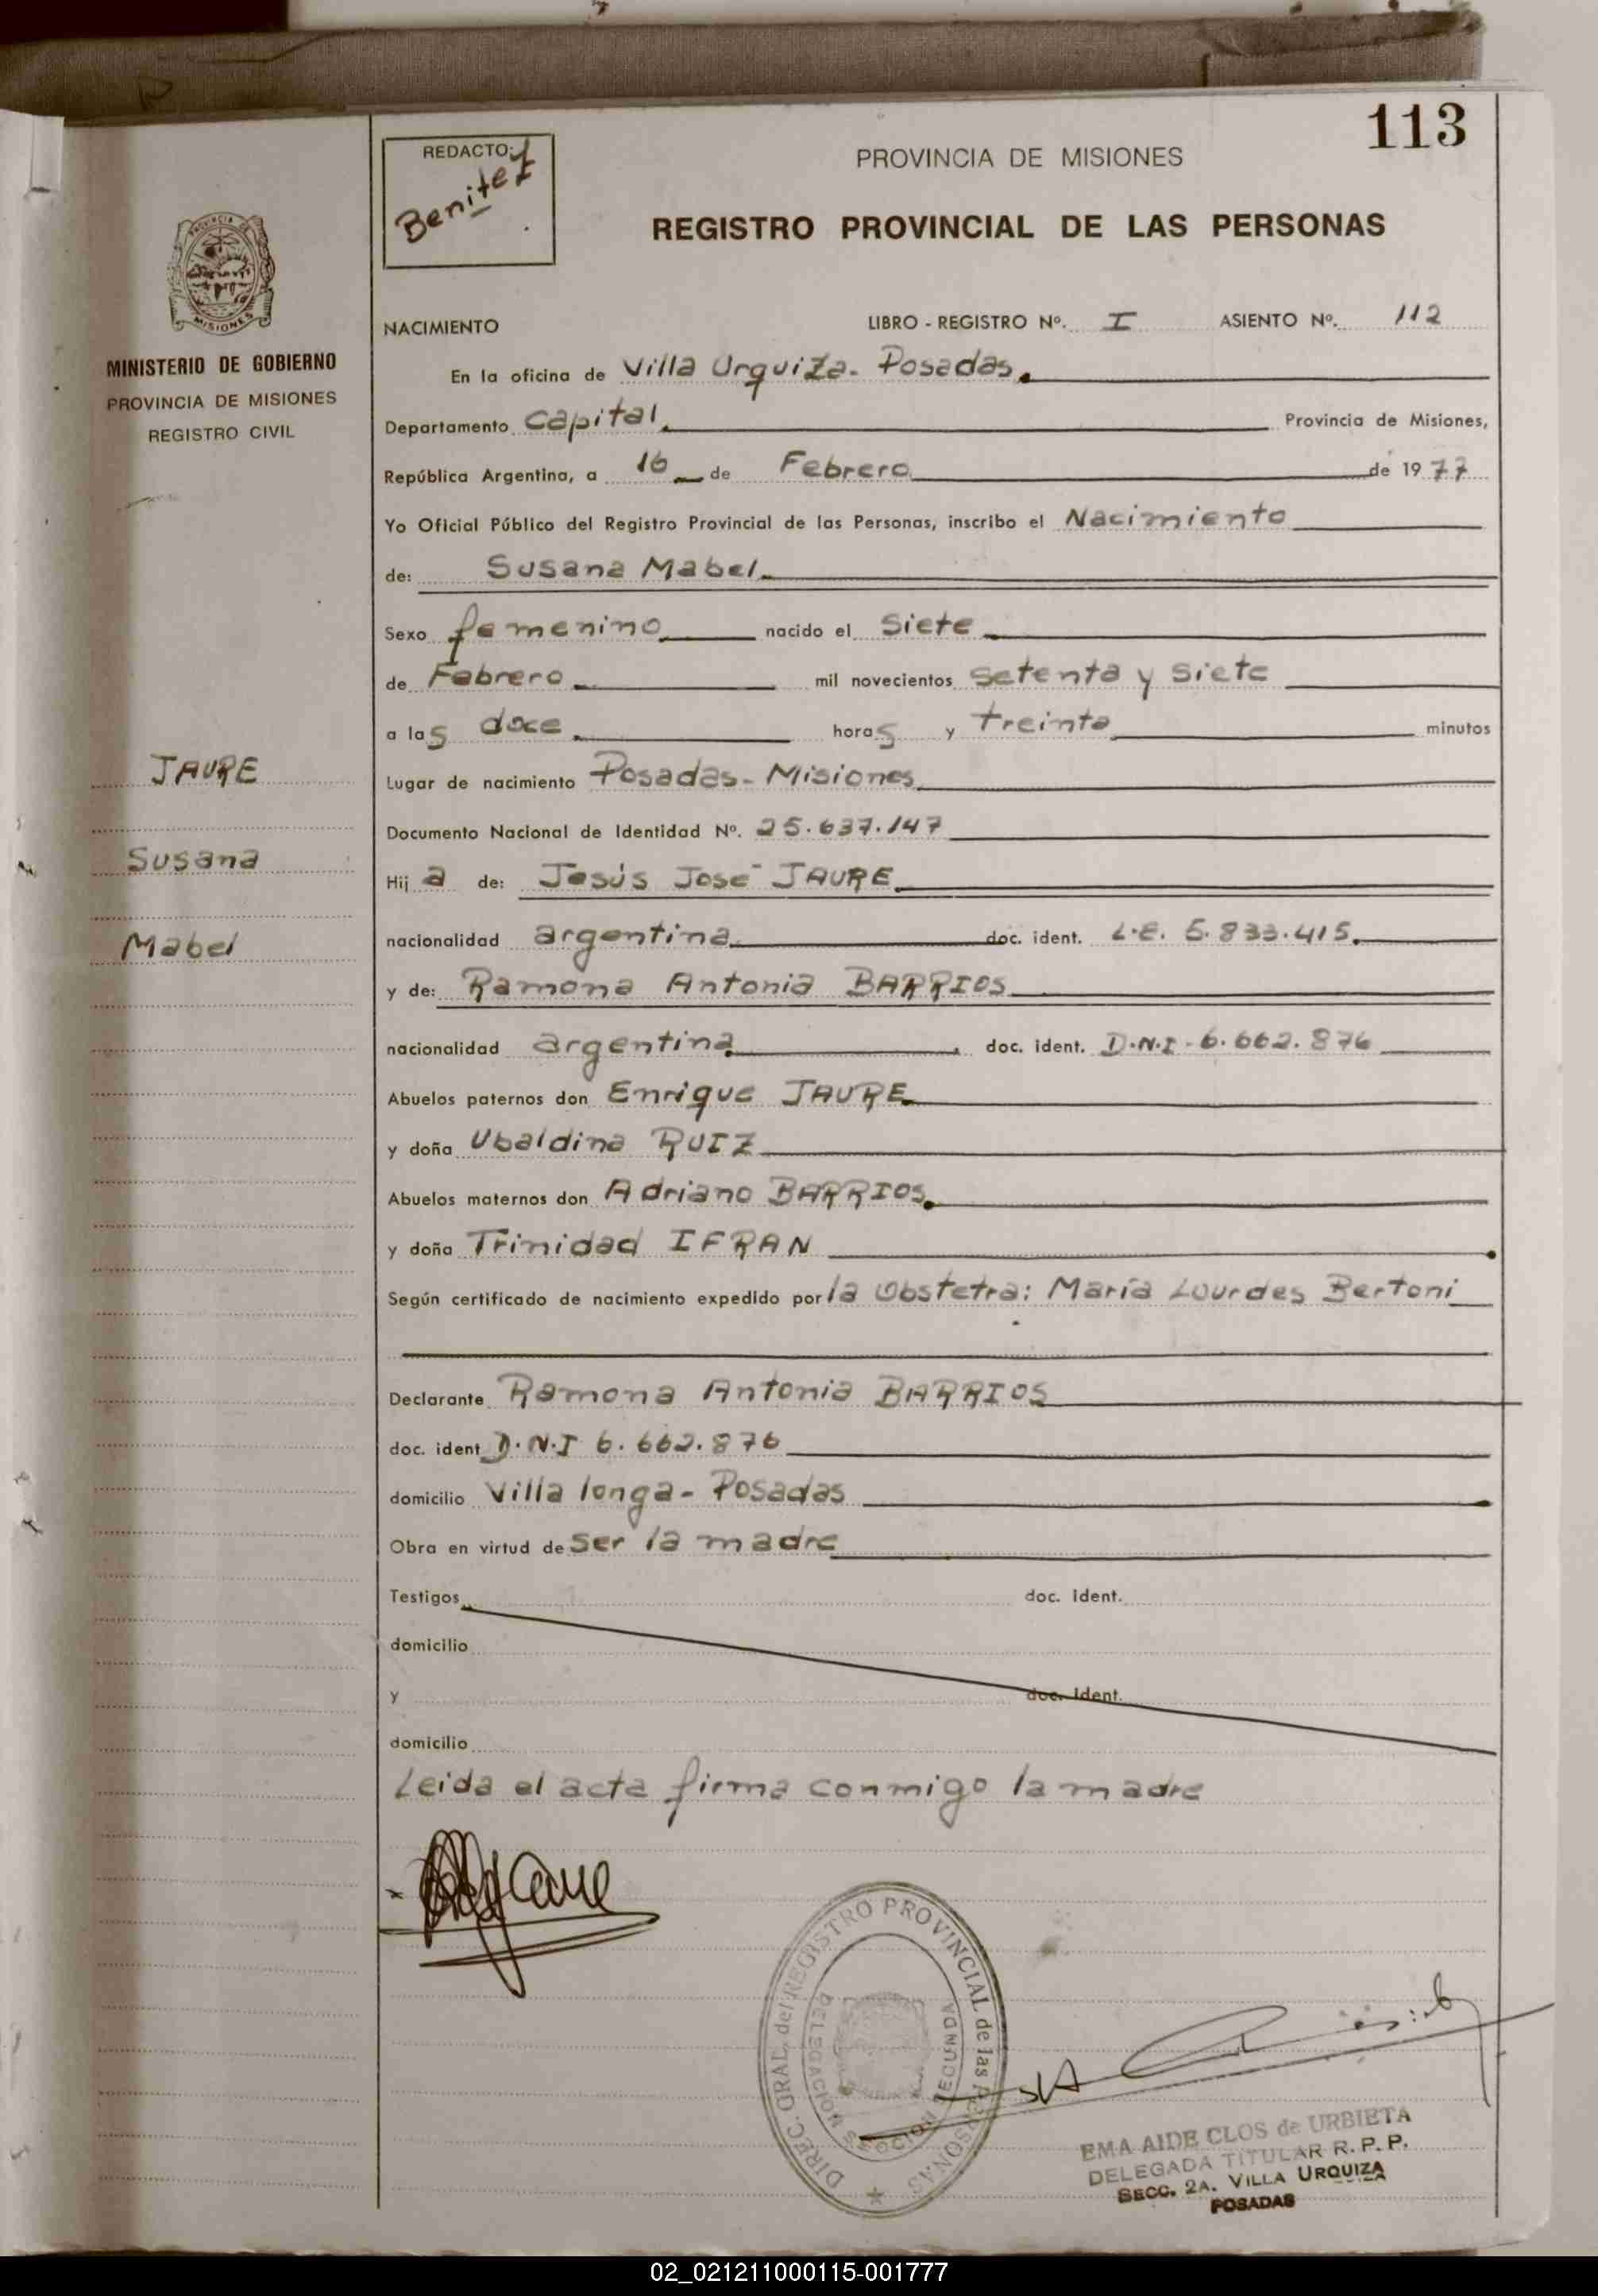 113
REDACTO:
Benitez
PROVINCIA DE MISIONES
REGISTRO PROVINCIAL DE LAS PERSONAS
PROVINCIA DE
MISIONES
MINISTERIO DE GOBIERNO
PROVINCIA DE MISIONES
REGISTRO CIVIL
JAURE
Susana
Mabel
NACIMIENTO LIBRO - REGISTRO Nº. I ASIENTO Nº. 112
En la oficina de Villa Urquiza. Posadas.
Departamento Capital. Provincia de Misiones,
República Argentina, a 16 de Febrero de 1977
Yo Oficial Público del Registro Provincial de las Personas, inscribo el Nacimiento
de: Susana Mabel.
Sexo femenino nacido el Siete
de Febrero mil novecientos setenta y siete
a las doce horas y treinta minutos
Lugar de nacimiento Posadas - Misiones
Documento Nacional de Identidad Nº. 25.637.147
Hija de: Jesús José JAURE
nacionalidad argentina doc. ident. L.E. 5.833.415.
y de: Ramona Antonia BARRIOS
nacionalidad argentina doc. ident. D.N.I - 6.662.876
Abuelos paternos don Enrique JAURE
y doña Ubaldina RUIZ
Abuelos maternos don Adriano BARRIOS.
y doña Trinidad IFRAN
Según certificado de nacimiento expedido por la Obstetra: María Lourdes Bertoni
Declarante Ramona Antonia BARRIOS
doc. ident D.N.I 6.662.876
domicilio Villa longa - Posadas
Obra en virtud de ser la madre
Testigos doc. ident.
domicilio
y doc. ident.
domicilio
Leida el acta firma conmigo la madre
DIREC. GRAL. del REGISTRO PROVINCIAL de las PERSONAS
DELEGACION SECCION SECUNDA
EMA AIDE CLOS de URBIETA
DELEGADA TITULAR R. P. P.
SECC. 2A. VILLA URQUIZA
POSADAS
02_021211000115-001777